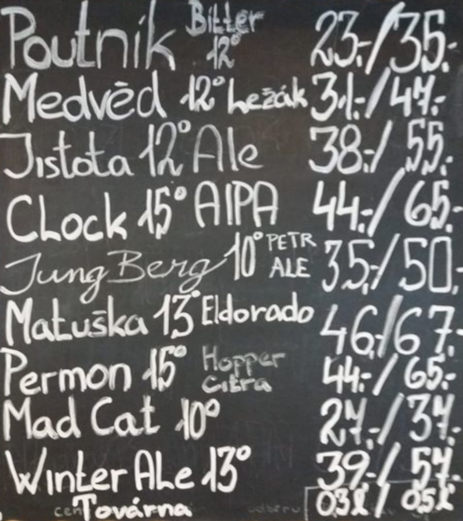 Poutník Bitter 12° 23,-/35,-
Medvěd 12° Ležák 31,-/47,-
Jistota 12° Ale 38,-/55,-
CLock 15° AIPA 44,-/65,-
Jung Berg 10° PETR ALE 35,-/50,-
Matuška 13° Eldorado 46,-/67,-
Permon 15° Hopper Citra 44,-/65,-
Mad Cat 10° 27,-/37,-
Winter ALe 13° 39,-/57,-
Továrna 0,3l/0,5l